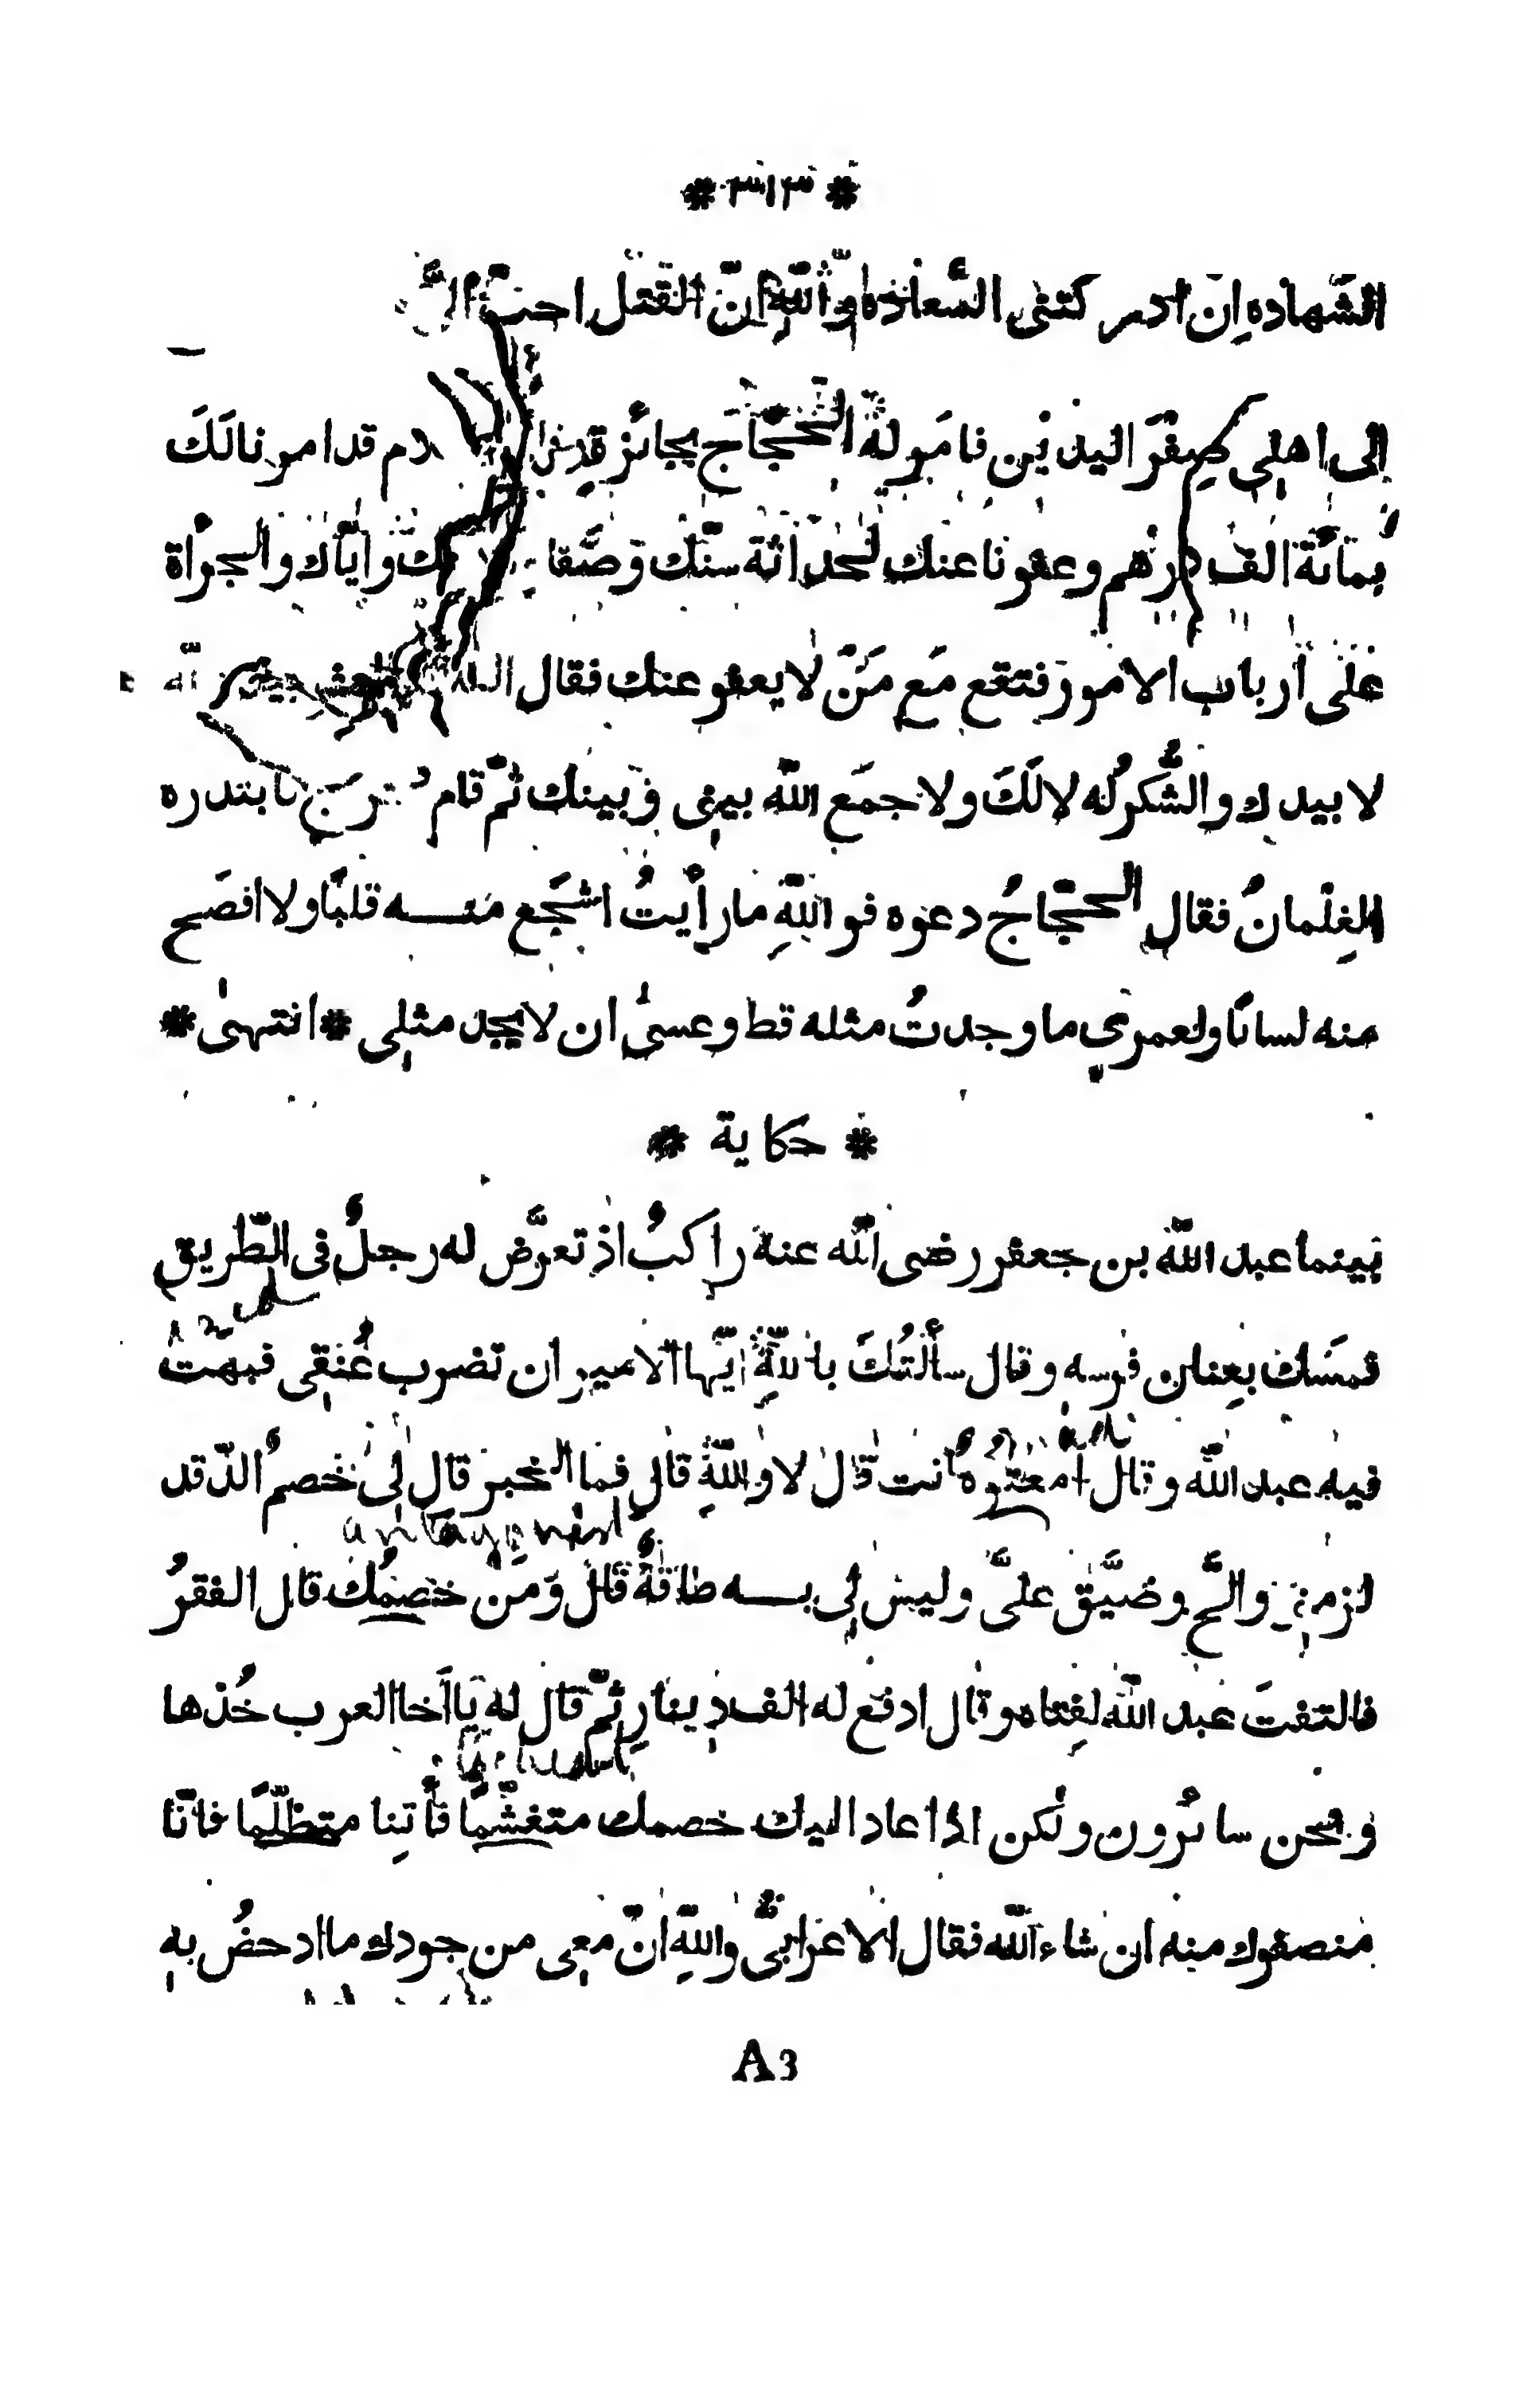 * ٣١٣ *
الشّهاده اِن ادركتنى السّعاده واللّهِ انّ القتل احبّ الىَّ
اِلى اهلِى صِفْرَ اليدين فامَرله الحجّاج بجائزةٍ قدامرنالَكَ
بمائة الف درهم وعفونا عنك لحداثة سنّك وصَفا واِيّاك والجرأة
على ارباب الامور فتقع مَع مَنْ لايعفو عنك فقال
لابيدك والشُّكرُله لالَكَ ولاجمَع اللّه بينى وَبينك ثمّ قام فابتدره
الغِلْمانُ فقال الحجّاجُ دعوه فواللّهِ مارأيتُ اشجَع منـه قلبًا ولاافصَح
منه لسانًا ولعمرِي ماوجدتُ مثله قط وعسىٰ ان لايجد مثلِى * انتهىٰ *
* حكاية *
بينما عبد اللّه بن جعفر رضى اللّه عنه راكبُ اذتعرَّض له رجلُ فى الطّريق
فمسَك بعِنان فرسه وقال سألتُكَ باللّهِ ايّها الامير ان تضرب عُنقِى فبهت
فيه عبد اللّه وقال امعتوه انت قال لاواللّهِ قال فماالخبر قال لِىٰ خصمُ الدّ قد
لزمنِى والحّ وضيَّق علىَّ وليس لِى بـه طاقةُ قال وَمَن خصمُك قال الفقرُ
فالتفتَ عبد اللّه لفِتاه وقال ادفع له الف دِينارٍ ثمّ قال له يااَخاالعرب خُذها
ونحن سائرُون ولكن اذا عاد اليك خصمك متغشّمًا فأتِنا متظلّمًا فانّا
منصفوك منه ان شاء اللّه فقال الاعرابىُّ واللّهِ انّ معِى من جودك ماادحضُ بهِ
A3